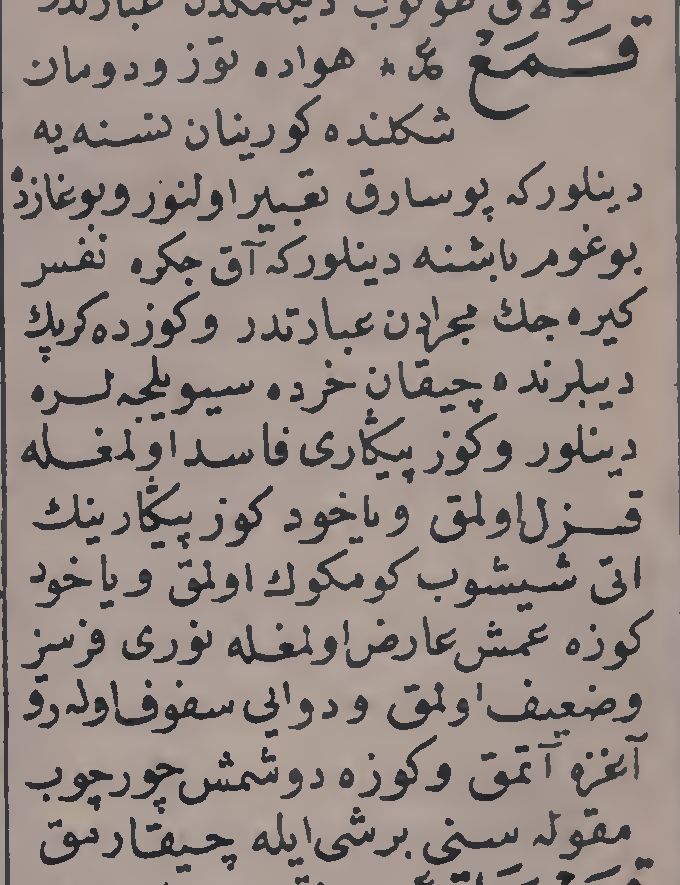 قمع هواده توز و دومان
شكلنده كورينان نسنه يه
دينلوركه پوسارق تعبير اولنور وبوغازده
بوغوم باشنه دينلوركه آق جكره نفس
كيره جك مجرادن عبارتدر وكوزده كرپك
ديبلرنده چيقان خرده سيويلجه لره
دينلور وكوز پيكاری فاسد اولمغله
قزل اولمق و ياخود كوز پيكارينك
اتی شيشوب كومكوك اولمق و ياخود
كوزه عمش عارض اولمغله نوری فرسز
وضعيف اولمق و دوايی سفوف اوله رق
آغزه آتمق وكوزه دوشمش چورچوب
مقوله سنی برشی ايله چيقارمق